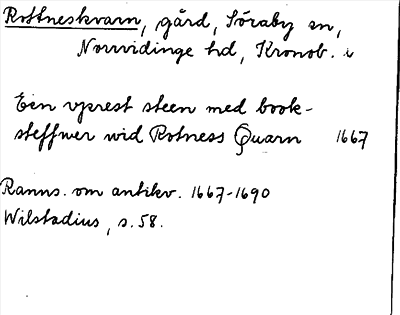 Rottneskvarn, gård, Söraby sn,
Norrvidinge hd, Kronob. l
Een uprest steen med book-
steffwer wid Rotness Quarn 1667
Ranns. om antikv. 1667-1690
Wilstadius, s. 58.